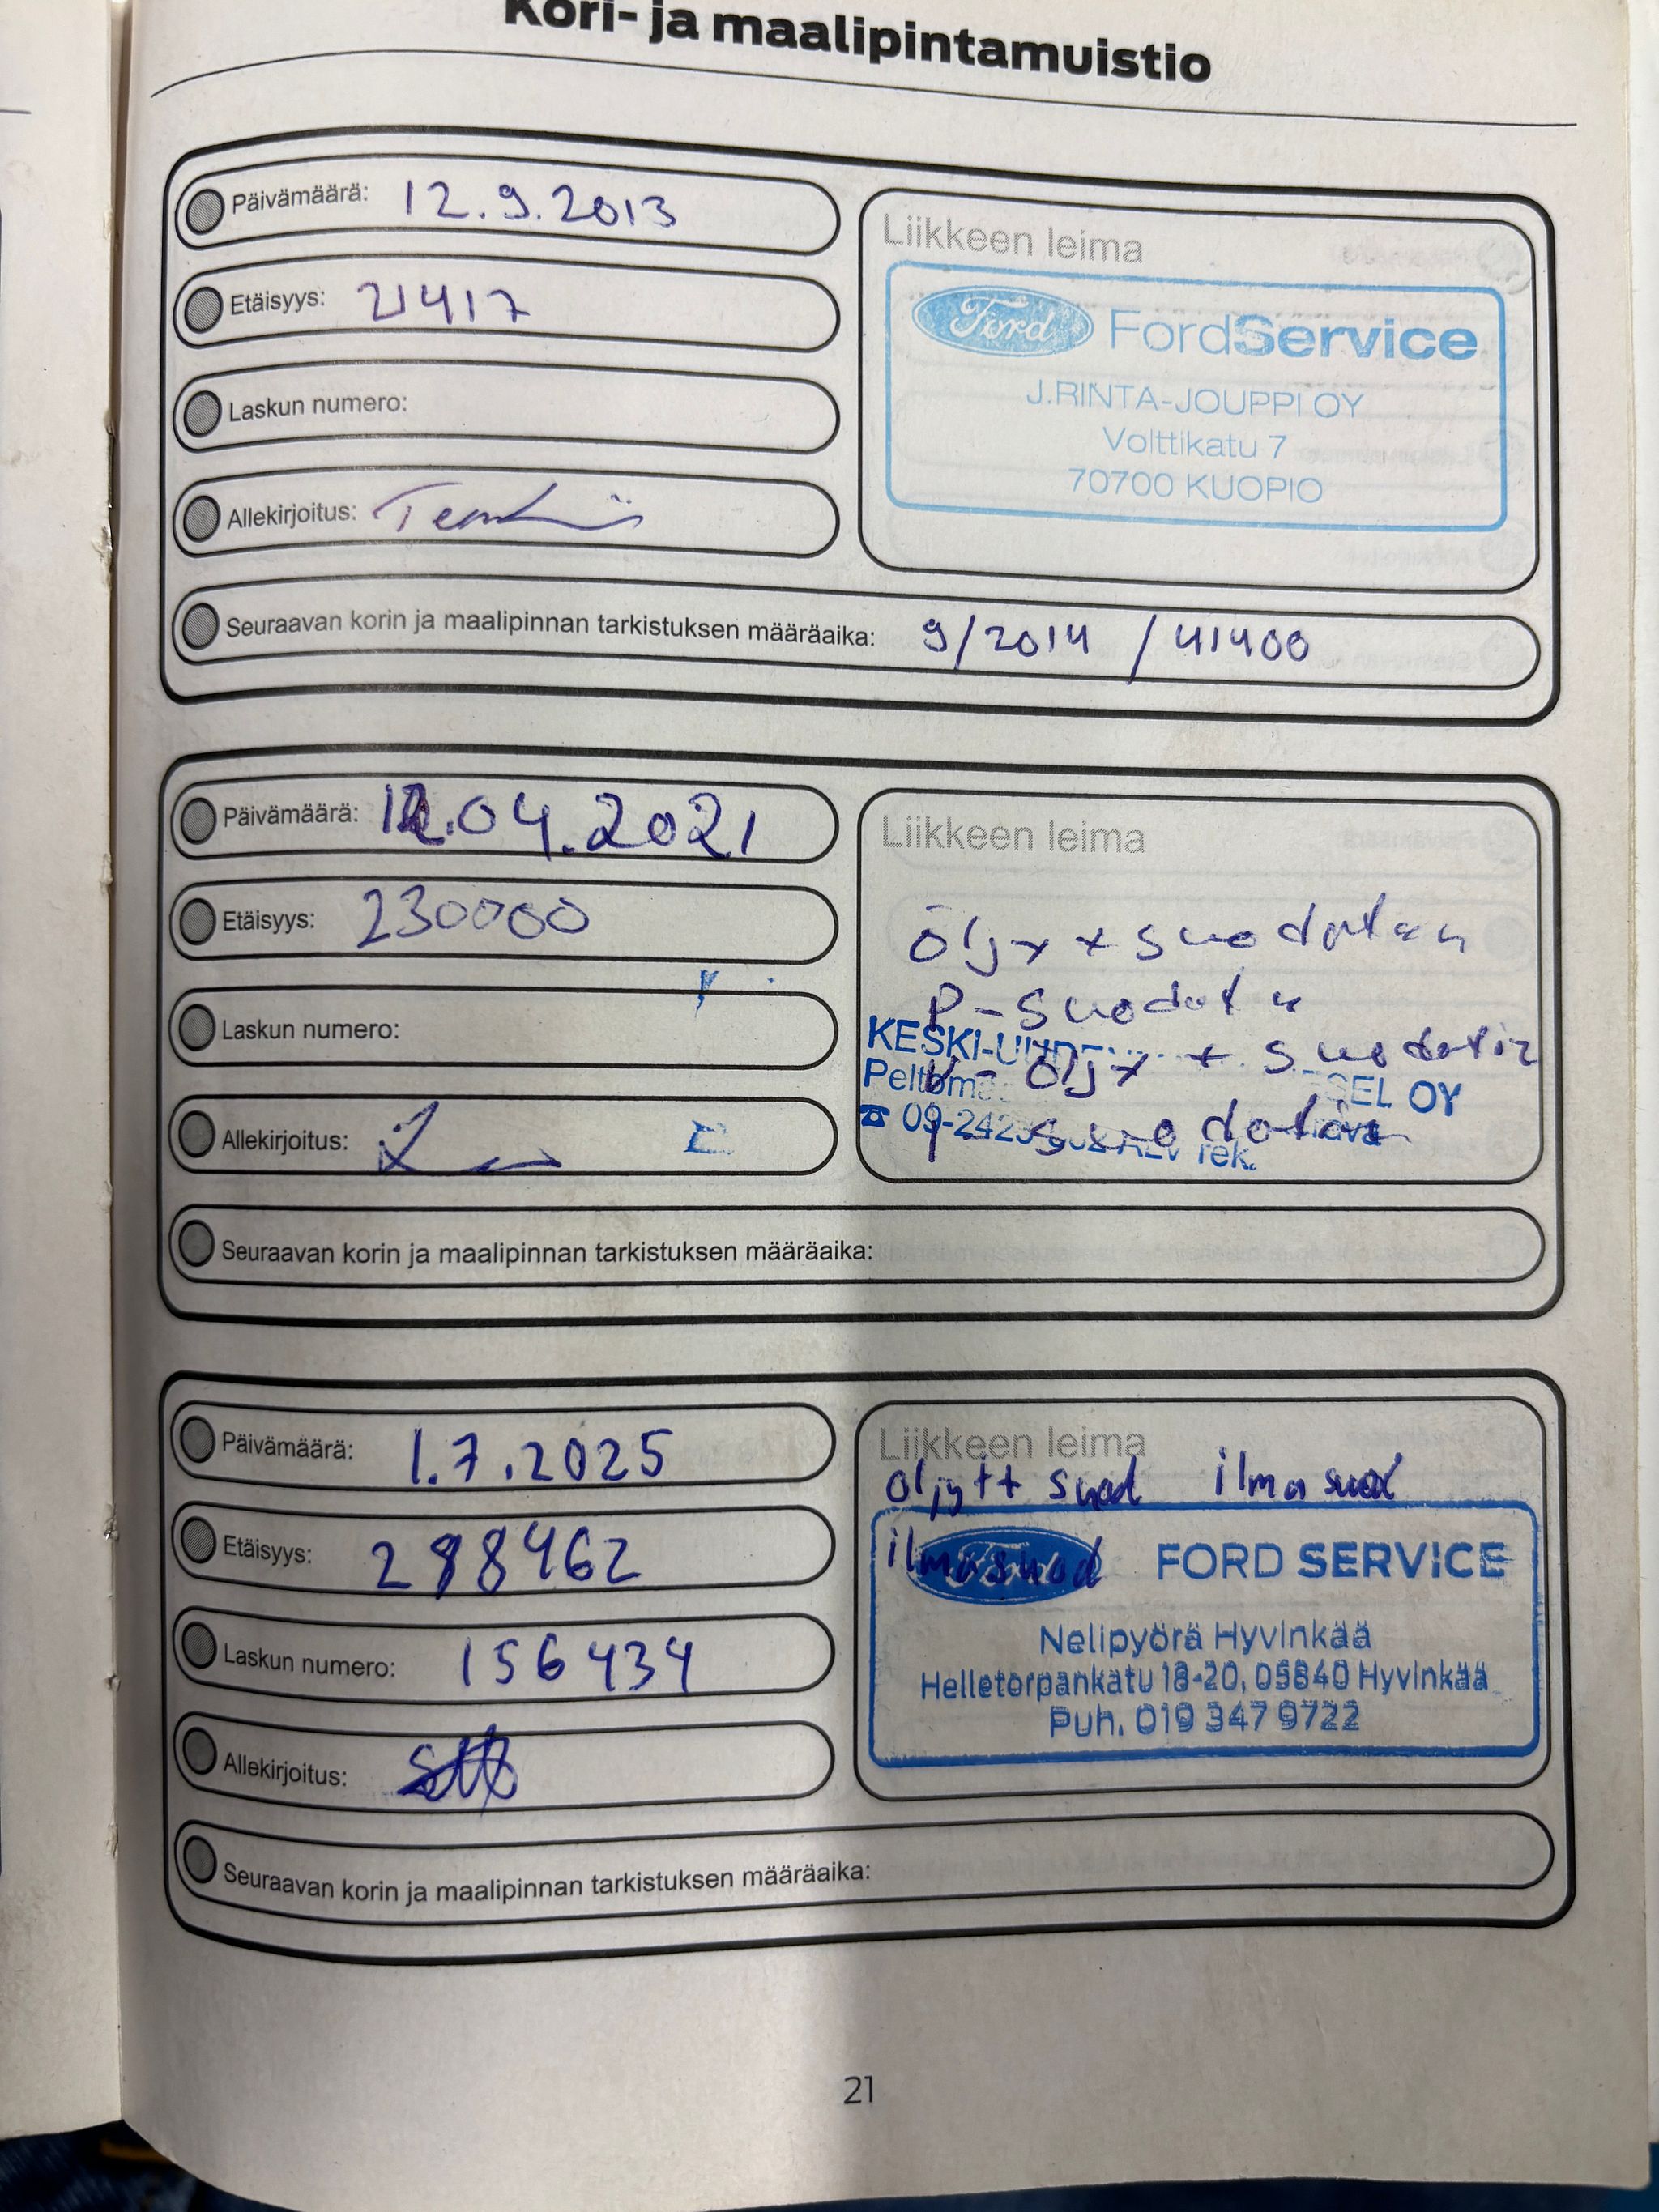 Kori- ja maalipintamuistio
Päivämäärä: 12.9.2013
Etäisyys: 21417
Laskun numero:
Allekirjoitus:
Liikkeen leima
Ford FordService
J.RINTA-JOUPPI OY
Volttikatu 7
70700 KUOPIO
Seuraavan korin ja maalipinnan tarkistuksen määräaika: 9/2014 / 41400
Päivämäärä: 12.04.2021
Etäisyys: 230000
Laskun numero:
Allekirjoitus:
Liikkeen leima
öljy + suodatin
P-suodatin
öljy + suodatin
suodatin
OY
Seuraavan korin ja maalipinnan tarkistuksen määräaika:
Päivämäärä: 1.7.2025
Etäisyys: 298462
Laskun numero: 156434
Allekirjoitus:
Liikkeen leima
öljyt+ suod ilmasuod
ilmasuod
FORD SERVICE
Nelipyörä Hyvinkää
Helletorpankatu 18-20, 05840 Hyvinkää
Puh. 019 347 9722
Seuraavan korin ja maalipinnan tarkistuksen määräaika:
21